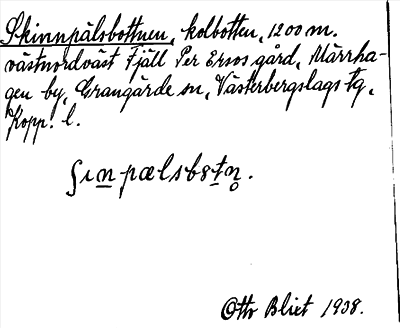 Skinnpälsbottnen, kolbotten, 1200 m.
västnordväst Fjäll Per Ersos gård, Märrha-
gen by, Grangärde sn, Västerbergslags tg,
Kopp. l.
ʃın̲pælsbɞt̲n̥.
Otto Blixt 1938.